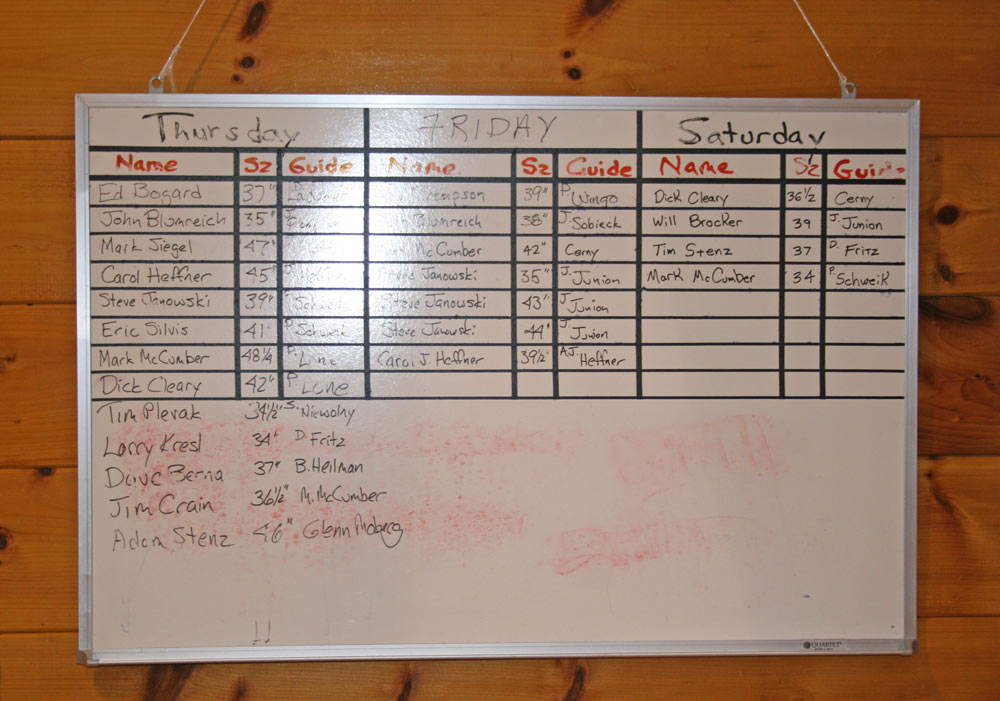 Thursday FRIDAY Saturday
Name Sz Guide Name Sz Guide Name Sz Guide
Ed Bogard 37" D. 39" P. Wingo Dick Cleary 36 1/2 Cerny
John Blomreich 35" Blomreich 38" J. Sobieck Will Brocker 39 J. Junion
Mark Siegel 47" McCumber 42" Cerny Tim Stenz 37 D. Fritz
Carol Heffner 45" Steve Janowski 35" J. Junion Mark McCumber 34 P. Schweik
Steve Janowski 39" Schweik Steve Janowski 43" J. Junion
Eric Silvis 41 P. Schweik Steve Janowski 44" J. Junion
Mark McCumber 48 1/4 P. Lune Carol J. Heffner 39 1/2" A.J. Heffner
Dick Cleary 42" P. Lune
Tim Plevak 34 1/2" S. Niewolny
Larry Kresl 34" D. Fritz
Dave Berna 37" B. Heilman
Jim Crain 36 1/2" M. McCumber
Adam Stenz 46" Glenn Moberg
QUARTET